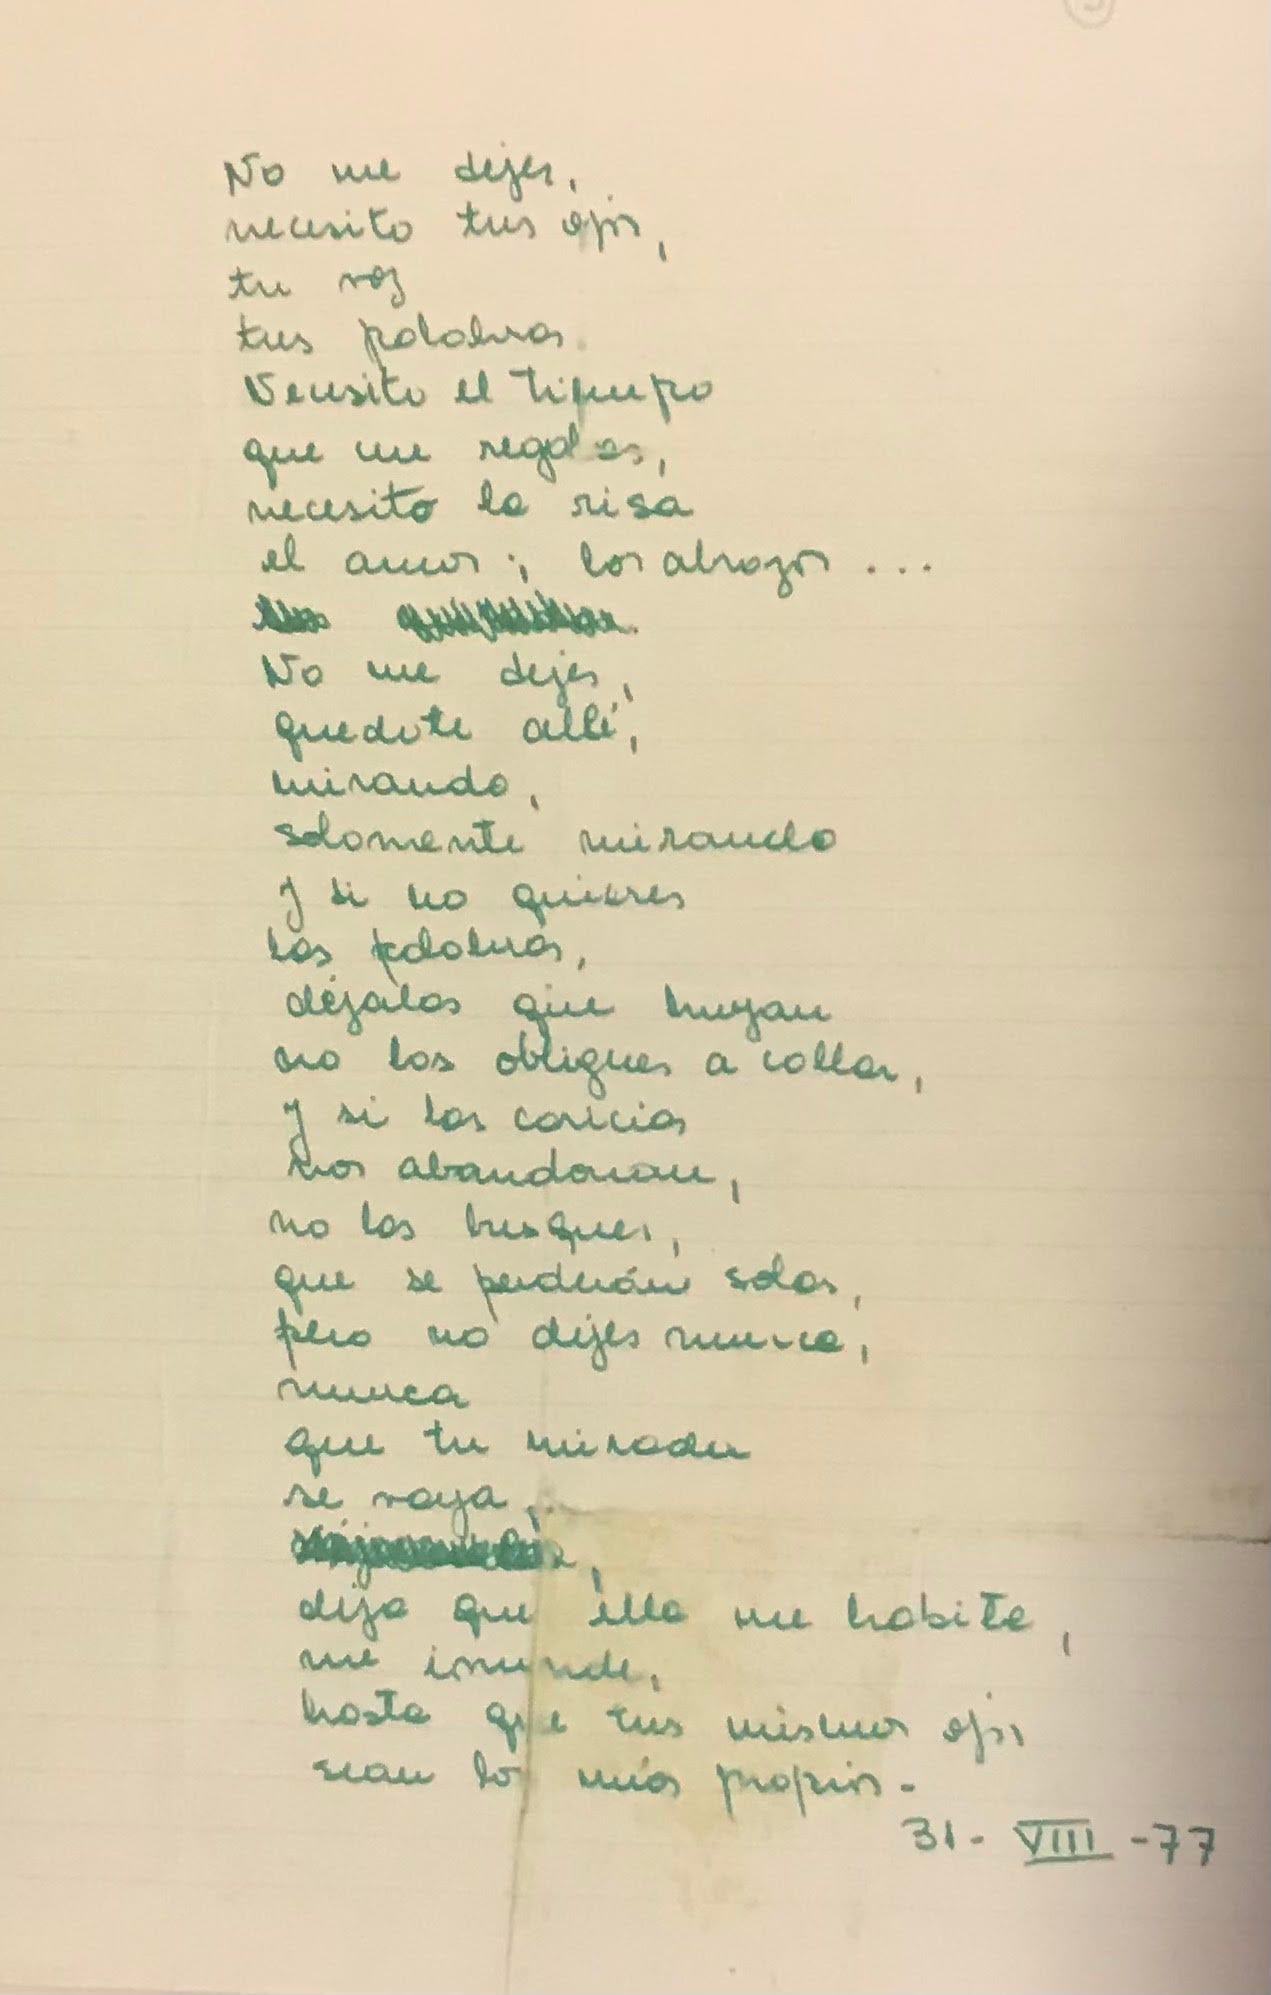 No me dejes,
necesito tus ojos,
tu voz
tus palabras.
Necesito el tiempo
que me regalas,
necesito la risa
el amor, los abrazos ...
No me dejes,
quedate allí,
mirando,
solamente mirando
y si no quieres
las palabras,
déjalas que huyan
no las obligues a callar,
y si las caricias
nos abandonan,
no las busques,
que se perderán solas,
pero no dejes nunca,
nunca
que tu mirada
se vaya,
deja que ella me habite,
me inunde,
hasta que tus mismos ojos
sean los míos propios.
31- VIII -77